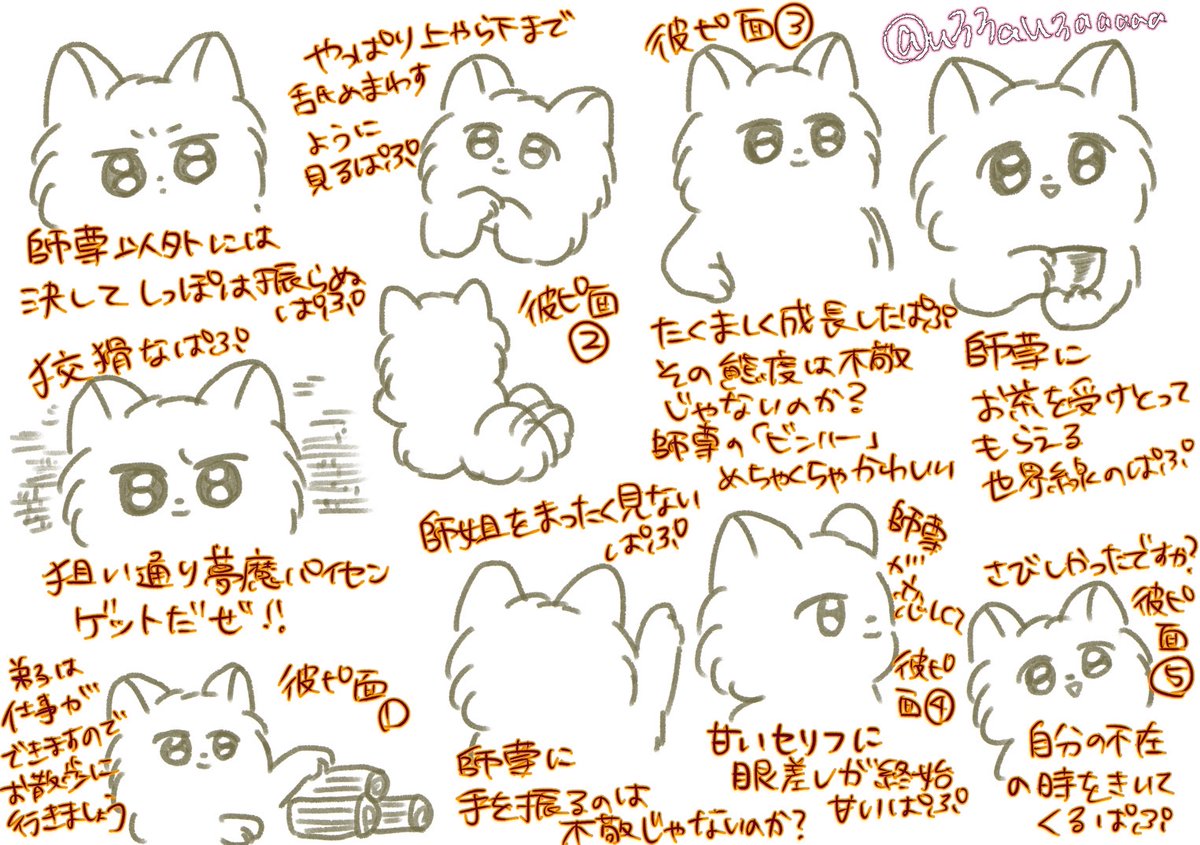 師尊以外には
決してしっぽは振らぬ
ぱぷ
やっぱり上から下まで
舐めまわす
ように
見るぱぷ
彼ピ面③
たくましく成長したぱぷ
その態度は不敬
じゃないのか?
師尊の「ビンハー」
めちゃくちゃかわいい
師尊に
お茶を受けとって
もらえる
世界線のぱぷ
狡猾なぱぷ
狙い通り夢魔パイセン
ゲットだぜ!!
彼ピ面
②
師姐をまったく見ない
ぱぷ
弟子は
仕事が
できますので
お散歩に
行きましょう
彼ピ面
①
師尊に
手を振るのは
不敬じゃないのか?
師尊
が
恋しくて
彼ピ
面④
甘いセリフに
眼差しが終始
甘いぱぷ
さびしかったですか?
彼ピ
面
⑤
自分の不在
の時をきいて
くるぱぷ